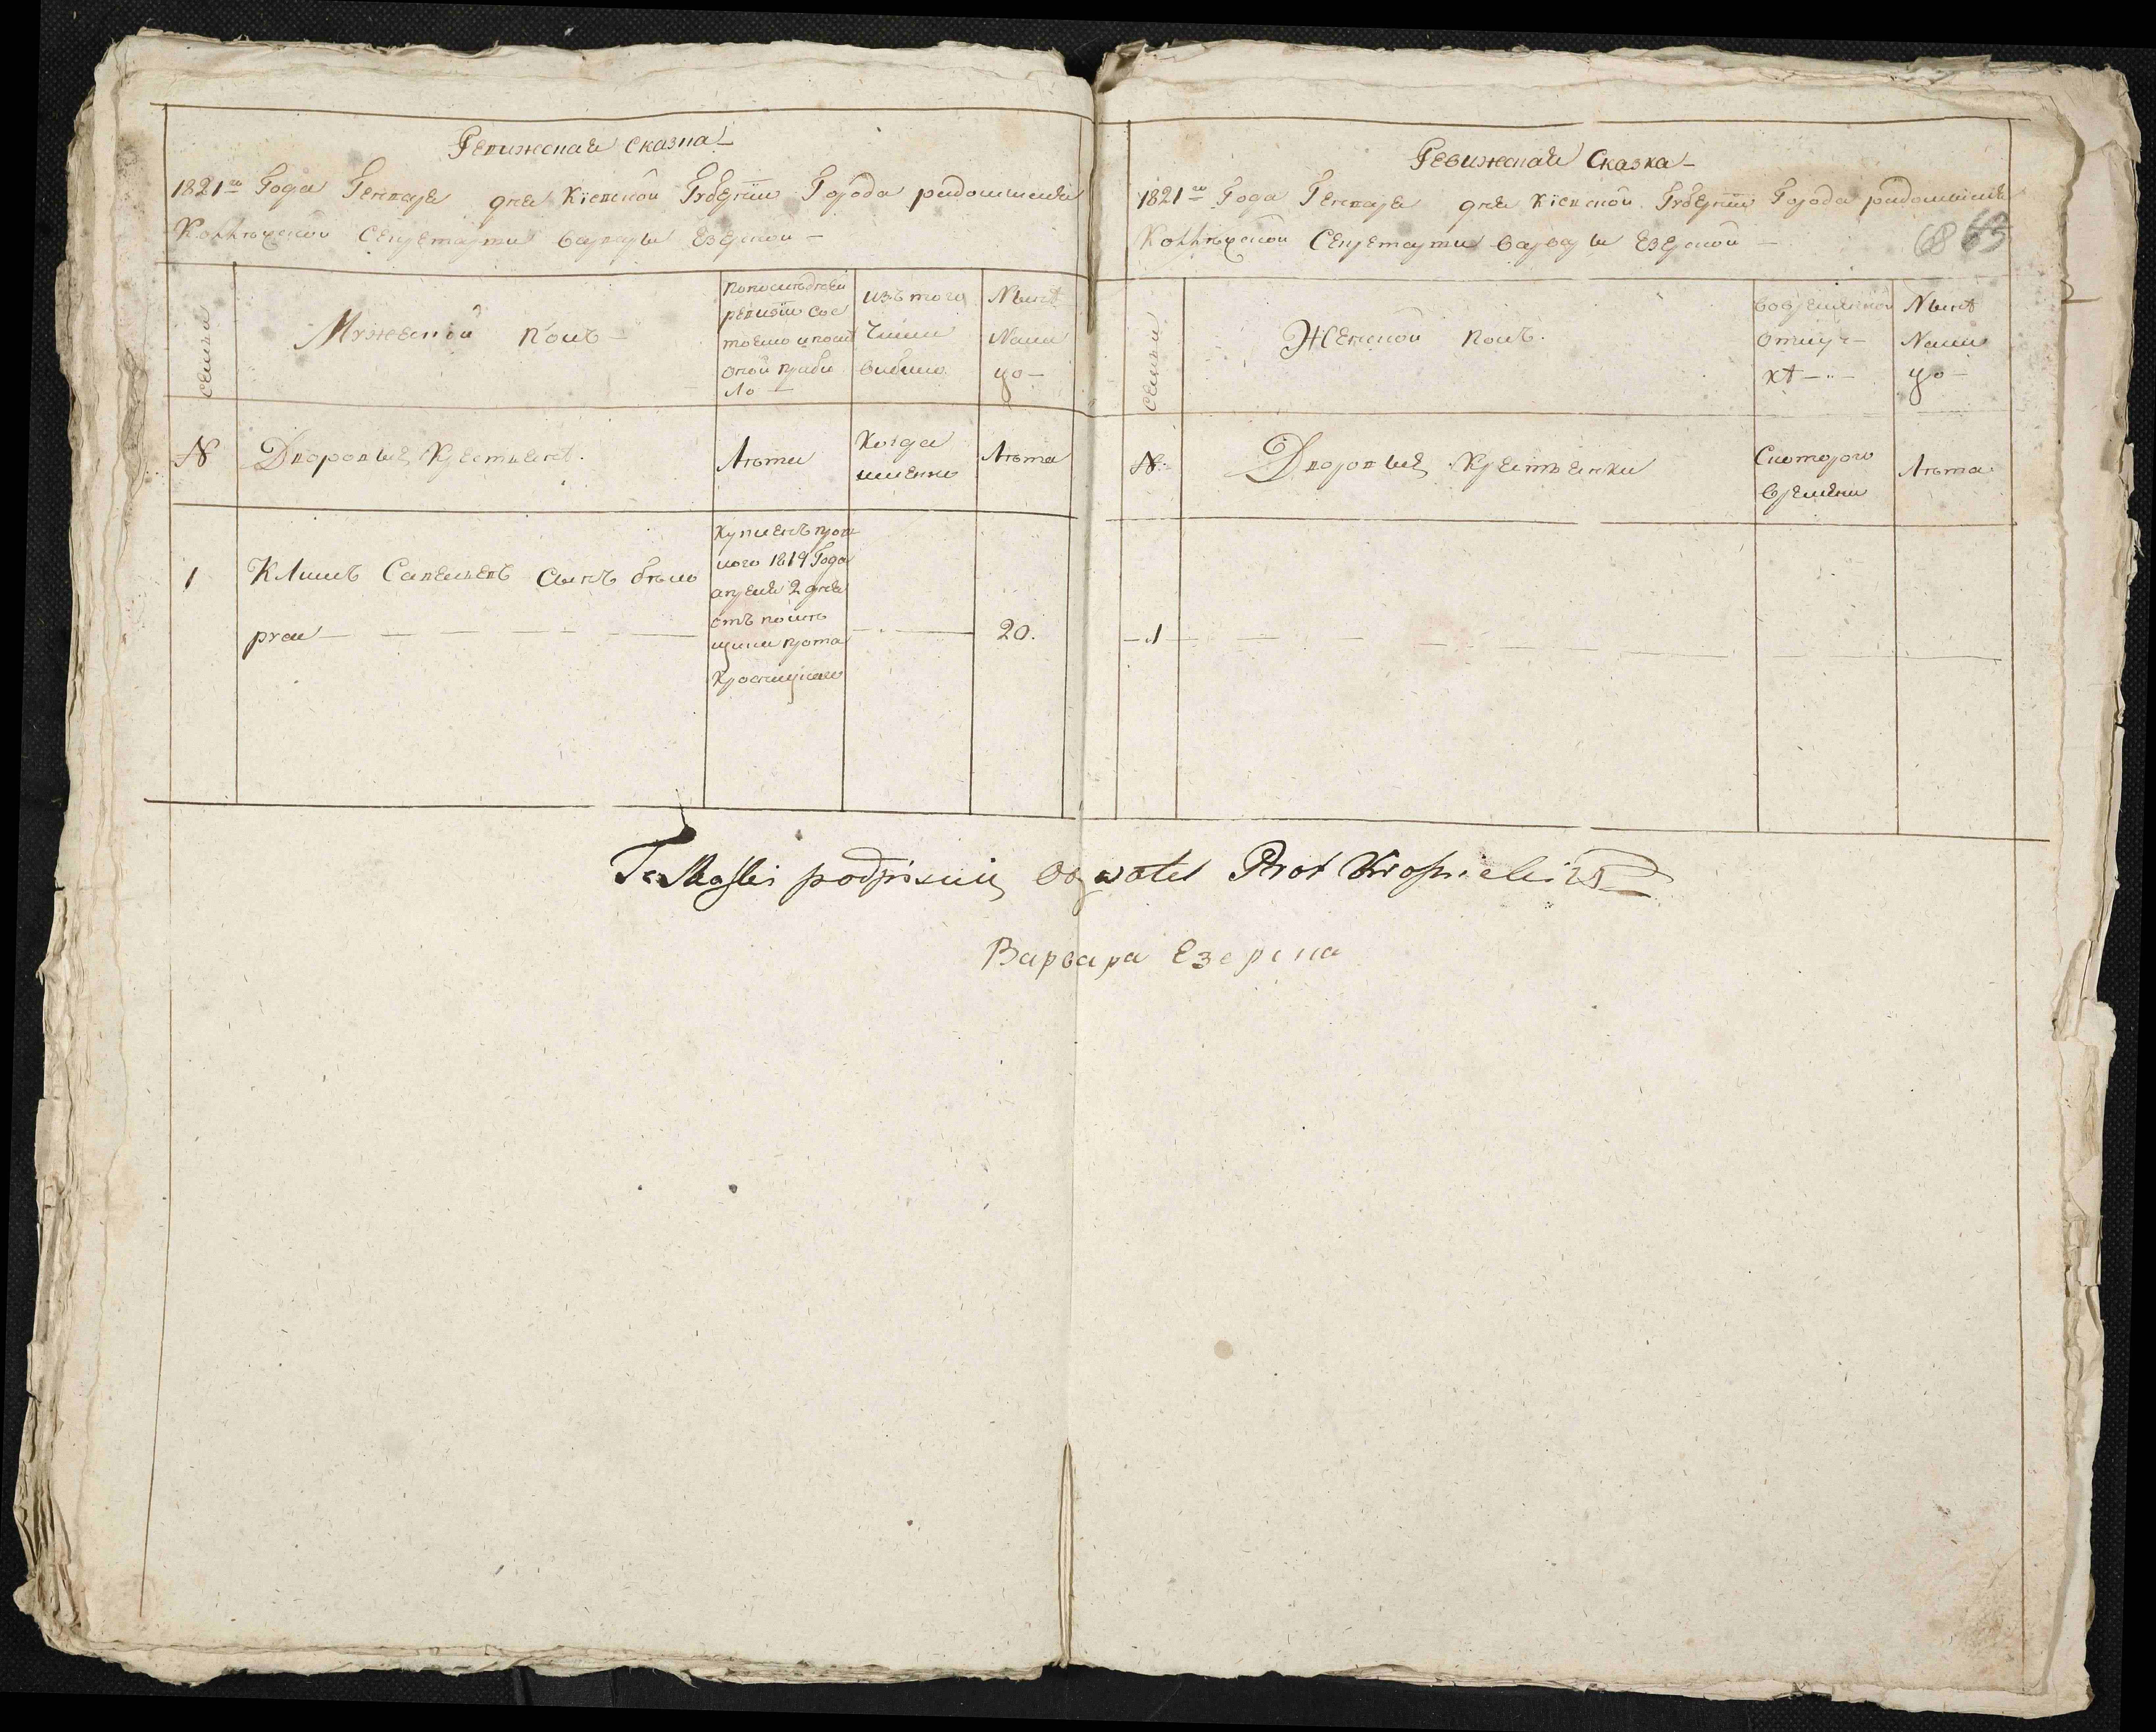 Ревижская сказка
1821го Года Генваря дня Кіевской Губернїи Города радомышля
Коллѣжской Секретарши варвары Езерской
семьи
Мужеской полъ
по последней
ревизїи сос
тояло и посл
оной прибы
ло
изъ того
числа
выбыло
Nынѣ
Nали
цо
N
Дворовые Крестьянѣ.
Лѣта
Когда
имянно
Лѣта
1
Климъ Савельевъ сынъ бѣло
рус
Купленъ прош
лого 1819 Года
апреля 2 дня
отъ помѣ
щика прота
20.
Ревижская Сказка
1821го Года Генваря дня Кіевской Губернїи Города радомышля
Коллѣжской Секретарши варвары Езерской
68 65
семьи
Женской полъ.
во временной
отлуч
кѣ
Nынѣ
Nали
цо
N.
Дворовые Крестьянки
Скоторого
времени
Лѣта
1
podpisuię Obywatel Prot
Варвара Езерска